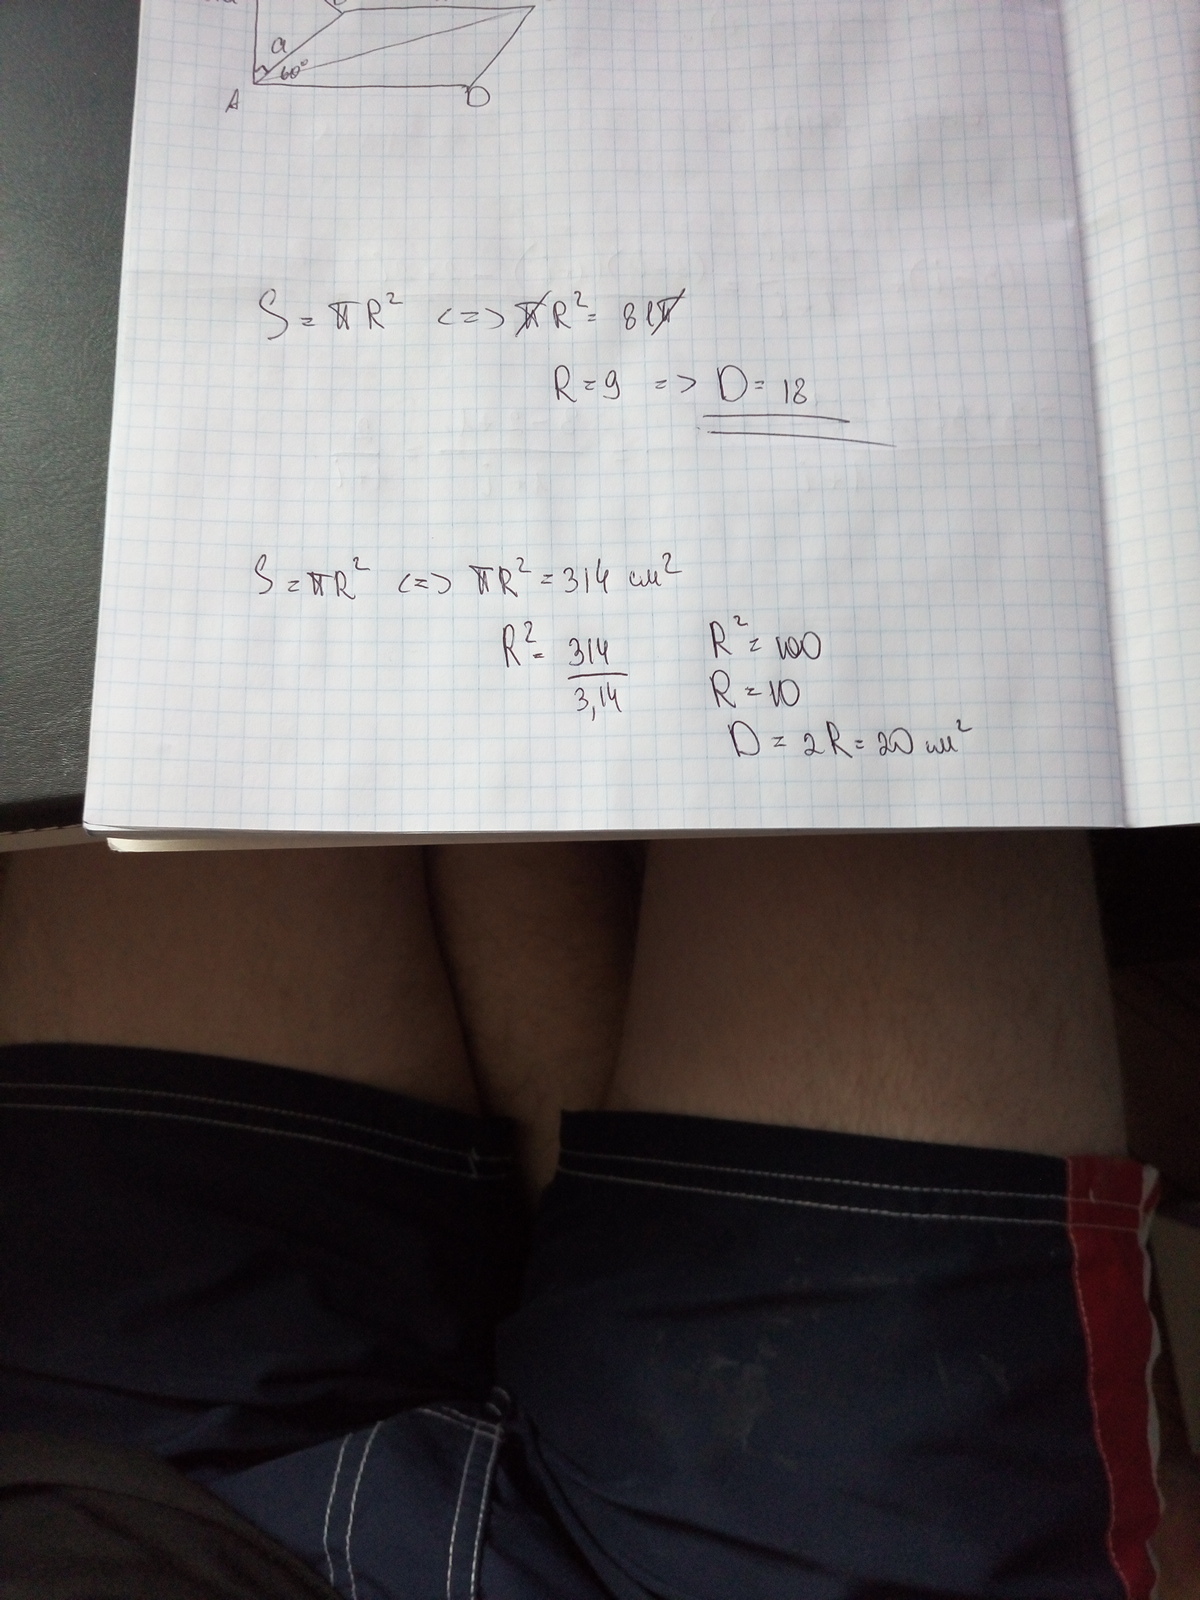 a
60°
A
D
S = πR² <=> πR² = 81π
R = 9 => D = 18
S = πR² <=> πR² = 314 см²
R² = 314/3,14 R² = 100
R = 10
D = 2R = 20 см²